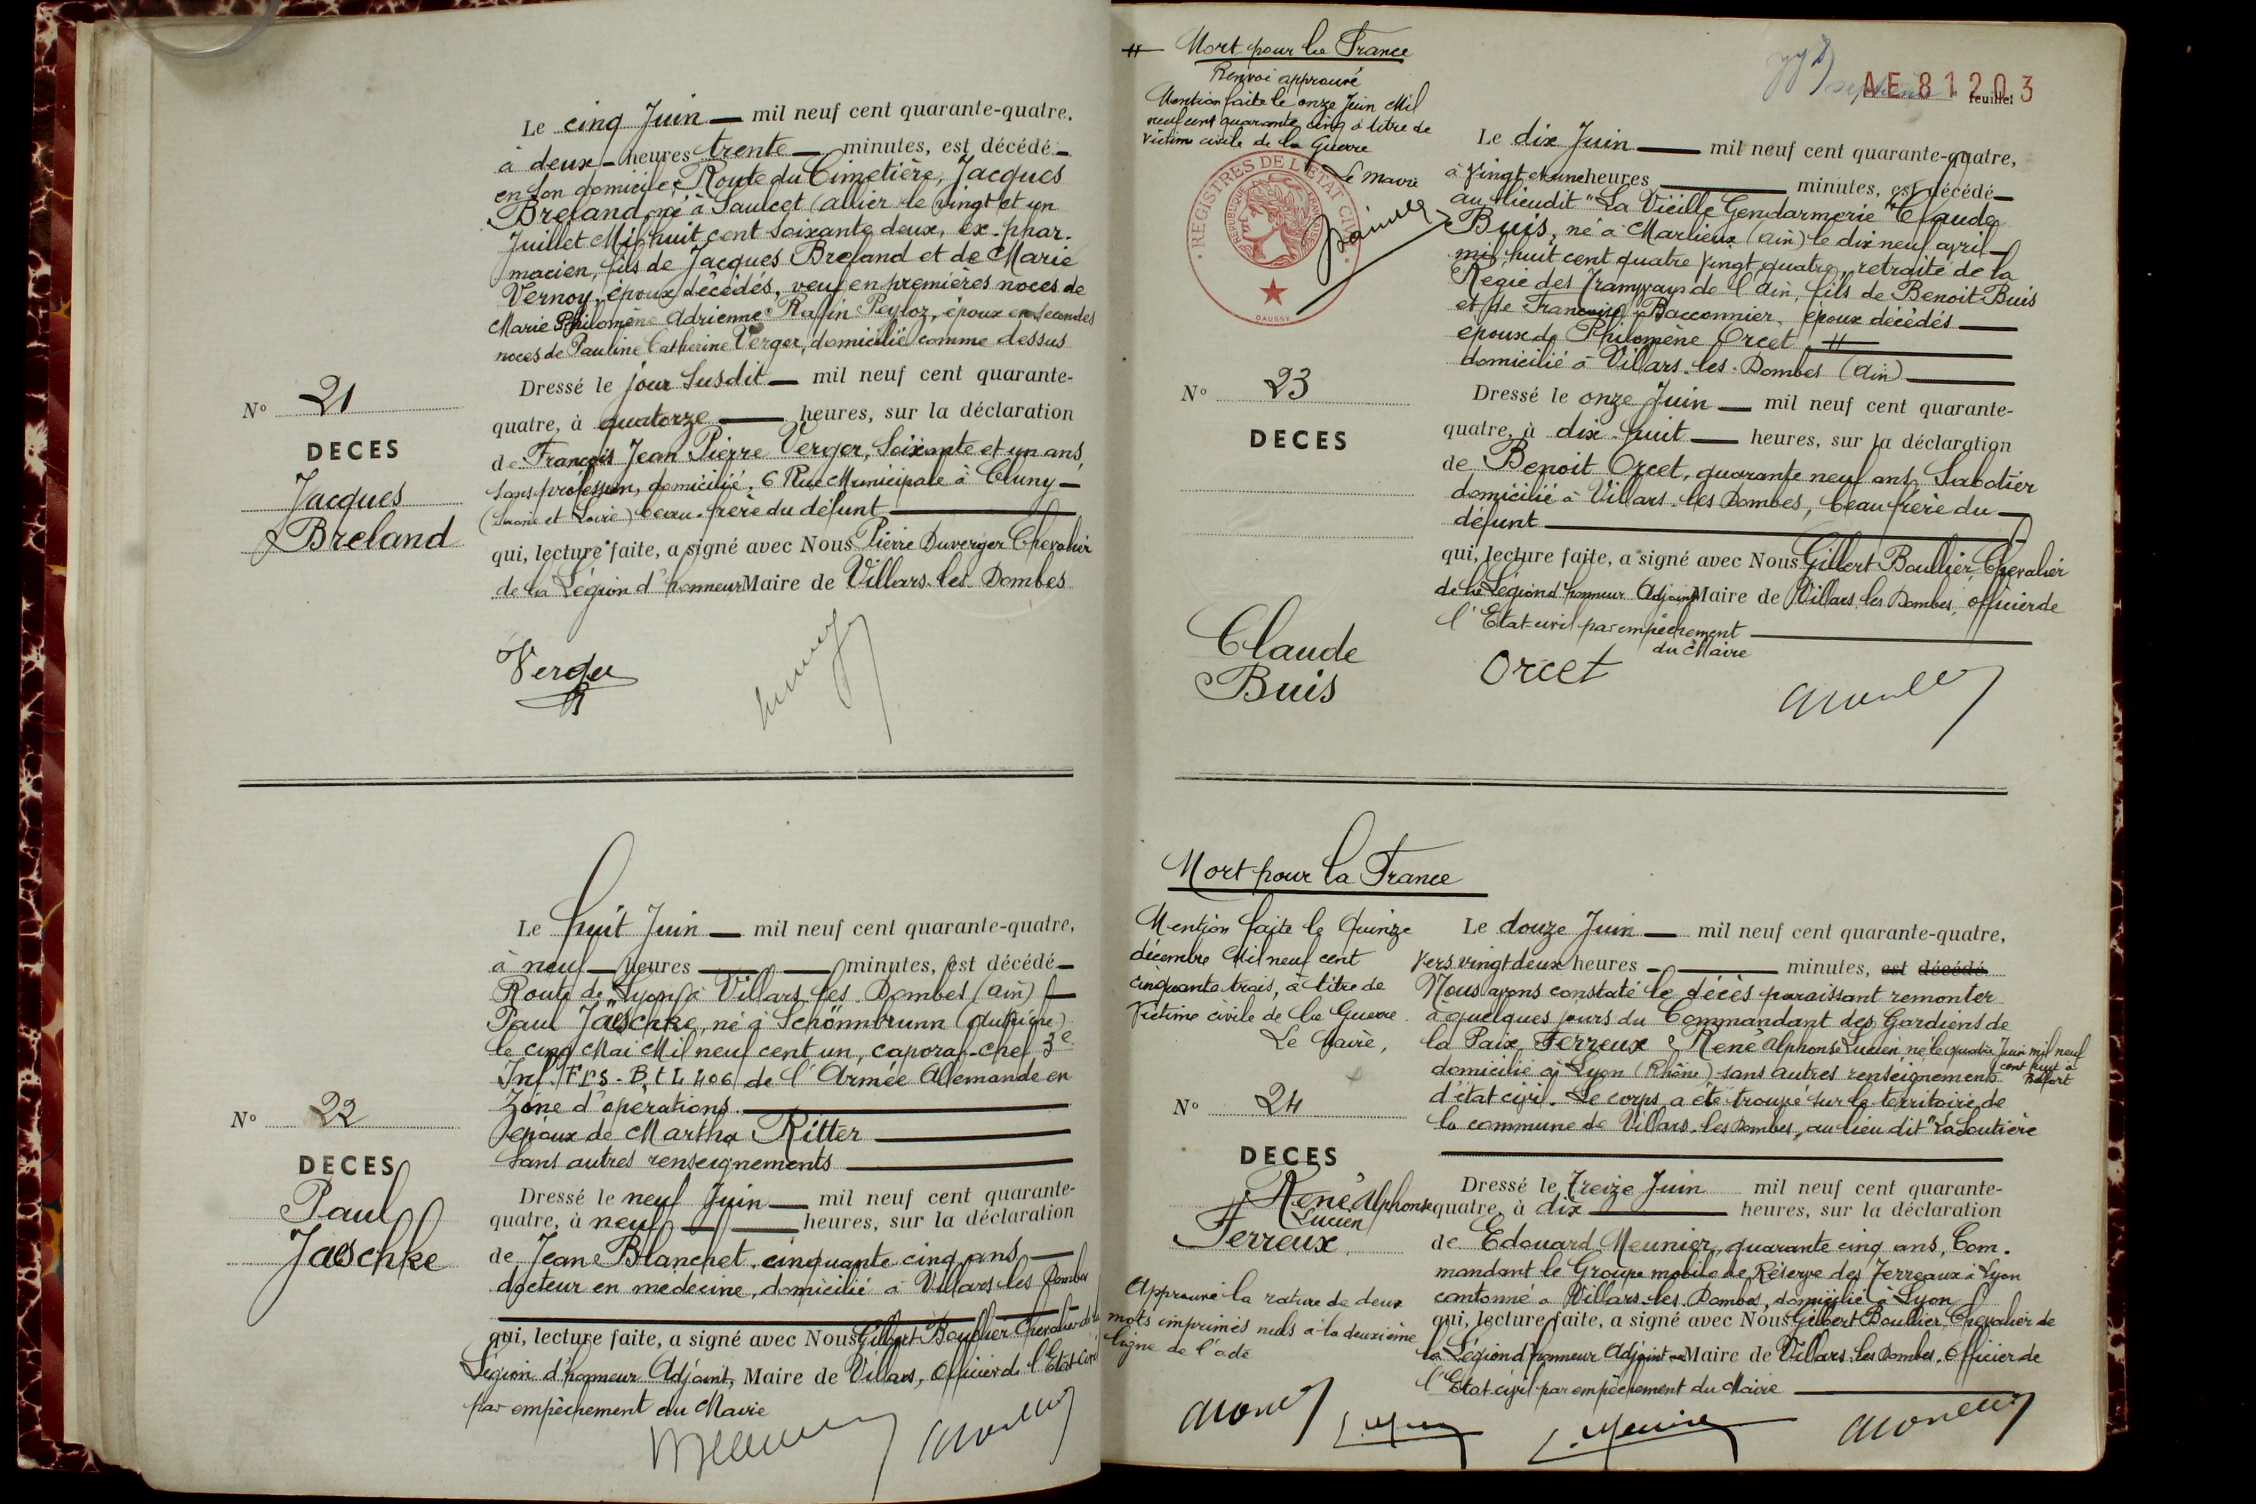 Le cinq Juin — mil neuf cent quarante-quatre,
à deux - heures trente — minutes, est décédé -
en son domicile, Route du Cimetière, Jacques
Breland né à Saulcet (allier le vingt et un
Juillet Mil huit cent soixante deux, ex-phar-
macien, fils de Jacques Breland et de Marie
Vernoy, époux décédés, veuf en premières noces de
Marie Philomène Adrienne Ralin Peyloz, époux en secondes
noces de Pauline Catherine Verger, domicilié comme dessus
Dressé le jour susdit — mil neuf cent quarante-
quatre, à quatorze — heures, sur la déclaration
de François Jean Pierre Verger, soixante et un ans,
sans profession, domicilié, 6 Rue Municipale à Cluny -
(Saone et Loire) beau-frère du défunt —
qui, lecture faite, a signé avec Nous Pierre Duverger Chevalier
de la Légion d'honneur Maire de Villars-les-Dombes
No 21
DECES
Jacques
Breland
Verger
Le huit Juin — mil neuf cent quarante-quatre,
à neuf — heures — minutes, est décédé -
Route de Lyon à Villars les Dombes (ain) —
Paul Jaeschke, né à Schönnbrunn (Autriche)
le cinq Mai Mil neuf cent un, caporal-chef 3e
Inf. Frs. Btl 406 de l'Armée Allemande en
Zône d'opérations. —
époux de Martha Ritter —
sans autres renseignements —
Dressé le neuf Juin — mil neuf cent quarante-
quatre, à neuf — heures, sur la déclaration
de Jean Blanchet, cinquante cinq ans —
docteur en medecine, domicilié à Villars les Dombes
qui, lecture faite, a signé avec Nous Gilbert Boullier Chevalier de la
Légion d'honneur Adjoint, Maire de Villars, officier de l'Etat-Civil
par empêchement du Mairie
No 22
DECES
Paul
Jaeschke
Mort pour la France
Renvoi approuvé
Mention faite le onze Juin Mil
neuf cent quarante cinq à titre de
victime civile de la Guerre
Le Maire
REGISTRES DE L'ETAT CIVIL
REPUBLIQUE FRANCAISE
DAUSSY
AE 81203
feuillet
Le dix Juin — mil neuf cent quarante-quatre,
à vingt et une heures — minutes, est décédé -
au lieudit "La Vieille Gendarmerie" Claude
Buis, né à Marlieux (ain) le dix neuf avril -
mil huit cent quatre vingt quatre, retraité de la
Régie des Tramways de l'ain, fils de Benoit Buis
et de Françoise Bacconnier, époux décédés —
époux de Philomène Orcet —
domicilié à Villars-les-Dombes (ain) —
Dressé le onze Juin — mil neuf cent quarante-
quatre, à dix-huit — heures, sur la déclaration
de Benoit Orcet, quarante neuf ans, Sabotier
domicilié à Villars-les Dombes, beau frère du -
défunt —
qui, lecture faite, a signé avec Nous Gilbert Boullier, Chevalier
de la Légion d'honneur Adjoint Maire de Villars les Dombes, officier de
l'Etat-civil par empêchement —
du Maire
No 23
DECES
Claude
Buis
Orcet
Mort pour la France
Mention faite le Quinze
décembre Mil neuf cent
cinquante trois, à titre de
Victime civile de la Guerre
Le Maire,
Le douze Juin — mil neuf cent quarante-quatre,
vers vingt deux heures — minutes, est décédé
Nous avons constaté le décès paraissant remonter
à quelques jours du Commandant des Gardiens de
la Paix Ferreux René Alphonse Lucien, né le quatre Juin mil neuf
cent huit à
Belfort
domicilié à Lyon (Rhône) sans autres renseignements
d'état civil. Le corps a été trouvé sur le territoire de
la commune de Villars-les Dombes, au lieu dit "La Soutière
Dressé le Treize Juin mil neuf cent quarante-
quatre, à dix — heures, sur la déclaration
de Edouard Meunier, quarante cinq ans, Com-
mandant le Groupe mobile de Réserve des Terreaux à Lyon
cantonné à Villars-les-Dombes, domicilié à Lyon
qui, lecture faite, a signé avec Nous Gilbert Boullier, Chevalier de
la Légion d'honneur Adjoint au Maire de Villars-les Dombes, officier de
l'Etat civil par empêchement du Maire —
No 24
DECES
René Alphonse
Lucien
Ferreux
Approuvé la rature de deux
mots imprimés nuls à la deuxième
ligne de l'acte